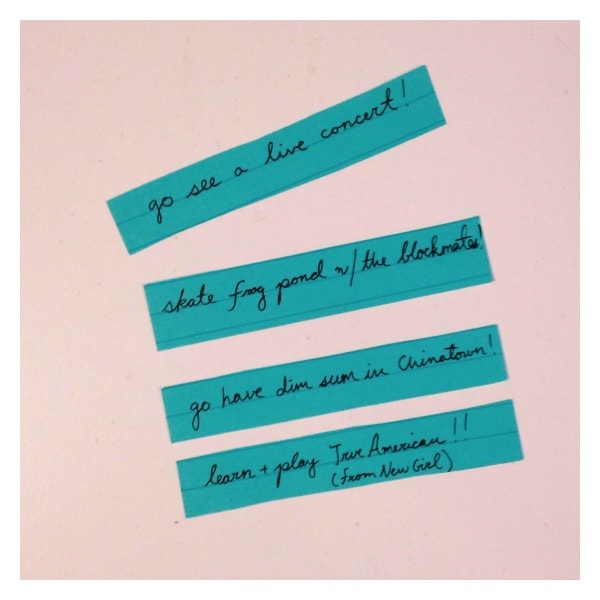 go see a live concert!
skate frog pond w/ the blockmates!
go have dim sum in Chinatown!
learn + play True American!!
(from New Girl)